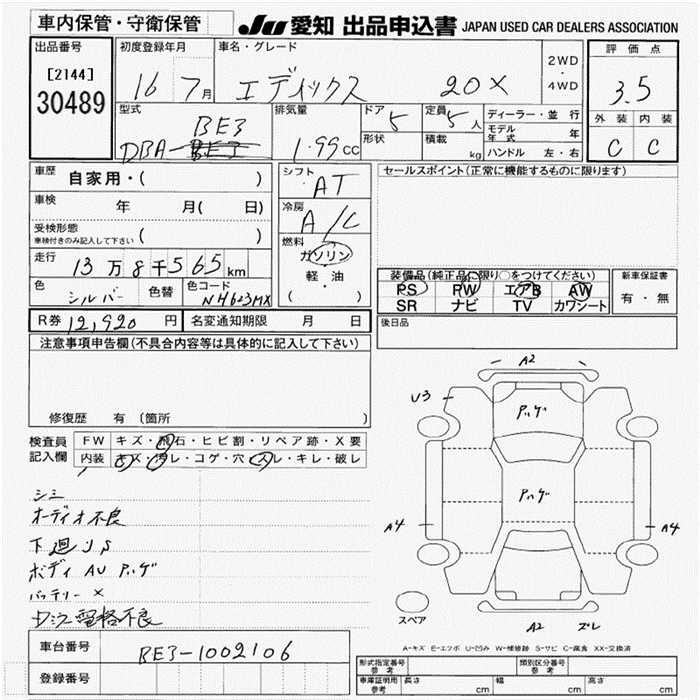 車内保管・守衛保管
JU 愛知 出品申込書 JAPAN USED CAR DEALERS ASSOCIATION
出品番号
[2144]
30489
初度登録年月
16 7月
車名・グレード
エディックス 20X
2WD
・
4WD
評価点
3.5
外装 内装
C C
型式
BE3
DBA-BE3
排気量
1.99cc
ドア 5
形状
定員 5人
積載 kg
ディーラー・並行
モデル年式 年
ハンドル 左・右
車歴 自家用・( )
車検 年 月( 日)
受検形態
車検付きのみ記入して下さい ( )
走行 13万8千565km
色 シルバー 色替 色コード NH623MX
シフト AT
冷房 A/C
燃料
ガソリン
軽・油
( )
セールスポイント(正常に機能するものに限ります)
装備品(純正品に限り○をつけてください)
PS PW エアB AW
SR ナビ TV カワシート
新車保証書
有・無
R券 12,920円 名変通知期限 月 日
後日品
注意事項申告欄(不具合内容等は具体的に記入して下さい)
修復歴 有 〔箇所 〕
検査員記入欄
FW キズ・飛石・ヒビ割・リペア跡・X要
内装 キズ・汚レ・コゲ・穴・スレ・キレ・破レ
シミ
オーディオ不良
下廻りS
ボディ AU アバゲ
バッテリー ×
電格不良
A2
U3
アバゲ
アバゲ
A4
A4
スペア
A2 ズレ
A-キズ E-エクボ U-凹み W-補修跡 S-サビ C-腐食 XX-交換済
車台番号 BE3-1002106
登録番号
形式指定番号 参考
類別区分番号 参考
車庫証明用 参考 長さ cm 幅 cm 高さ cm